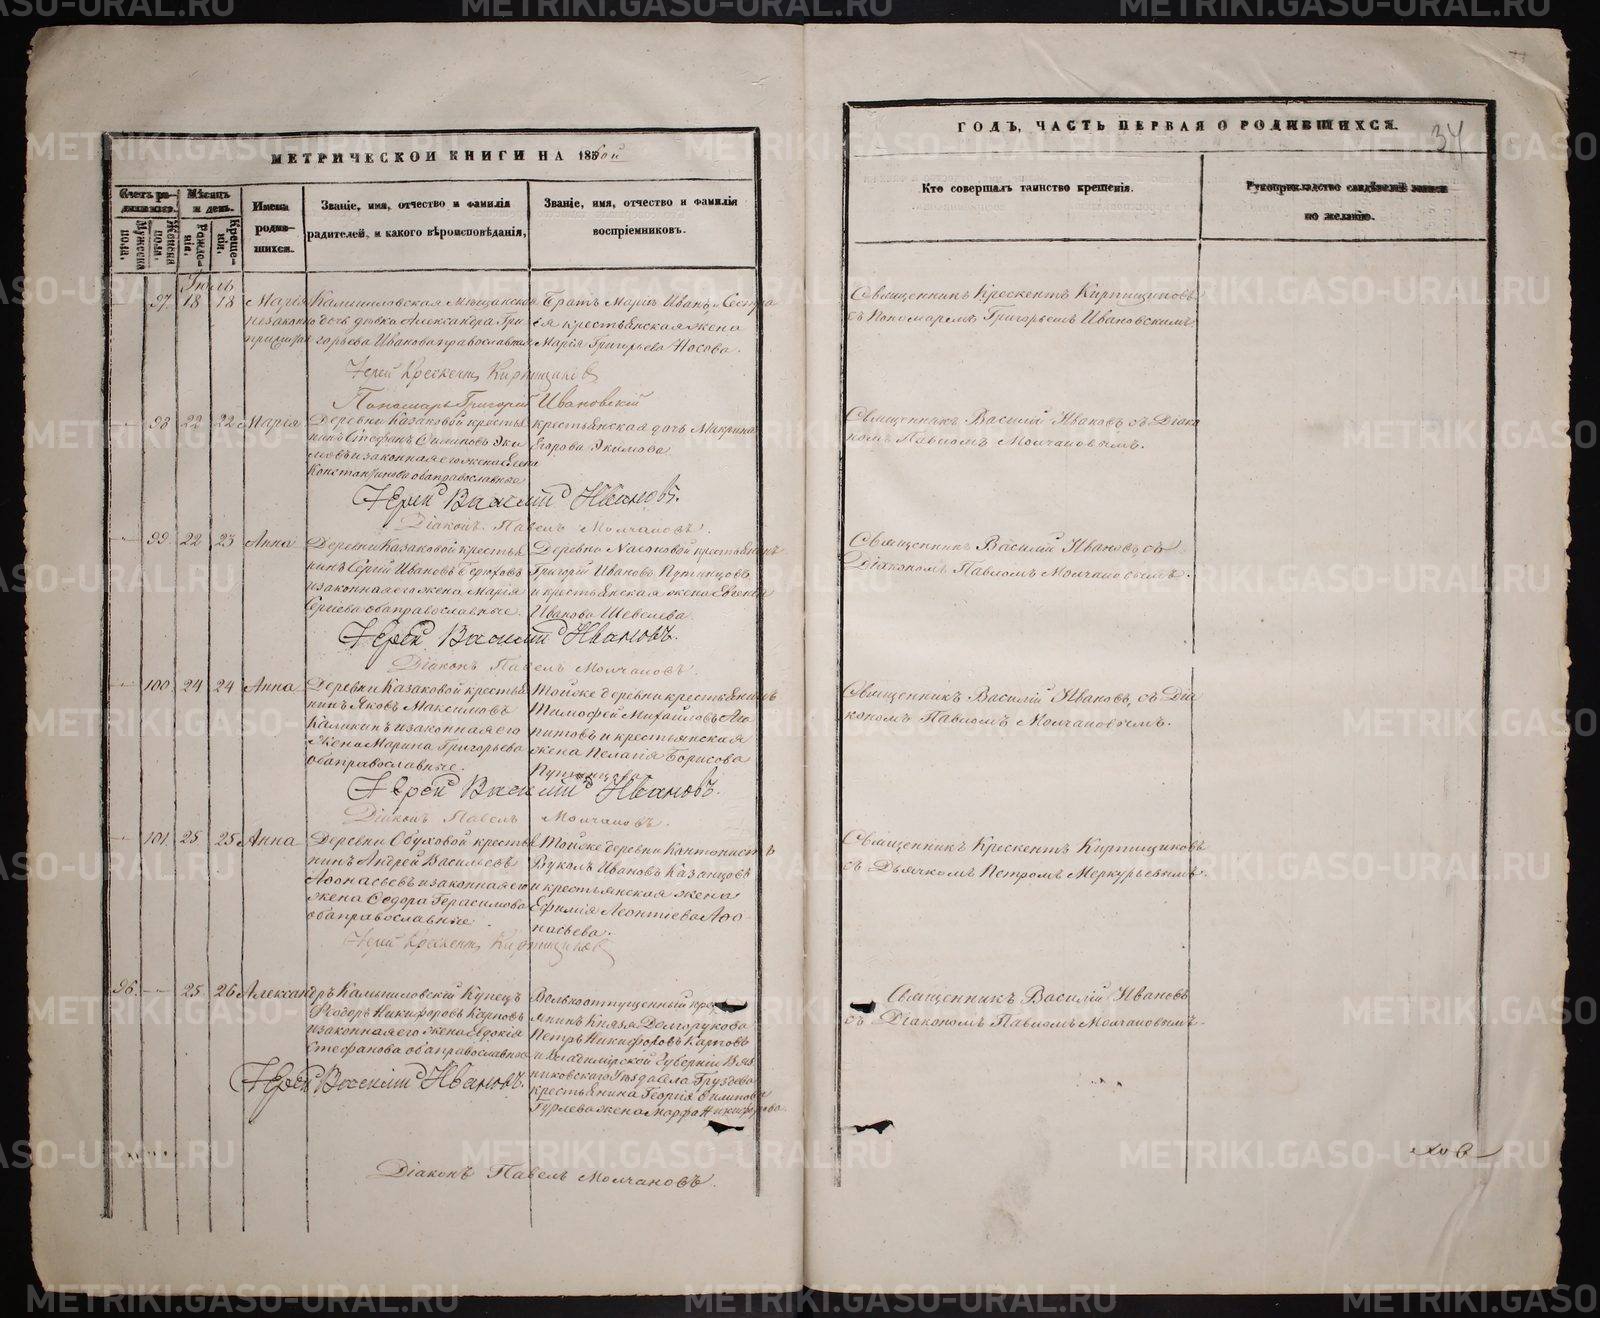 МЕТРИЧЕСКОЙ КНИГИ НА 185
ГОДЪ, ЧАСТЬ ПЕРВАЯ О РОДИВШИХСЯ.
34
Счетъ родившихся.
Мужеска пола.
Женска пола.
Мѣсяцъ и день.
Рожденія.
Крещенія.
Имена родившихся.
Званіе, имя, отчество и фамилія
родителей, и какого вѣроисповѣданія,
Званіе, имя, отчество и фамилія
воспріемниковъ.
Кто совершалъ таинство крещенія.
Рукоприкладство свидѣтелей записи
по желанію.
Іюль
97. 18 18 Марія
незаконно
Камышловская Мѣщанская
дочь дѣвка Александра Гри
горьева Иванова православная
Братъ Маріи Иванъ, и Сестра
ея крестьянская жена
Марія Григорьева Носова.
Священникъ Крескентъ Кирпищиковъ
съ Пономаремъ Григорьемъ Ивановскимъ.
Іерей Крескентъ Кирпищиковъ
Пономарь Григорій Ивановскій
98 22 22 Марія
Деревни Казаковой крестья
нинъ Стефанъ Филиповъ Эки
мовъ и законная его жена Елена
Константинова оба православные
крестьянская дочь Макрина
Егорова Экимова
Священникъ Василій Ивановъ съ Діако
номъ Павломъ Молчановымъ.
Іерей Василій Ивановъ.
Діаконъ Павелъ Молчановъ.
99. 22 23 Анна
Деревни Казаковой крестья
нинъ Сергій Ивановъ Бѣрюховъ
и законная его жена Марія
Сергіева оба православные.
Деревни крестьянинъ
Григорій Ивановъ Путанцовъ
и крестьянская жена Евгенія
Иванова Шевелева.
Священникъ Василій Ивановъ съ
Діакономъ Павломъ Молчановымъ.
Іерей Василій Ивановъ.
Діаконъ Павелъ Молчановъ.
100. 24 24 Анна
Деревни Казаковой крестья
нинъ Яковъ Максимовъ
Каликинъ и законная его
жена Марина Григорьева
оба православные.
Тойже деревни крестьянинъ
Тимофей Михайловъ
и крестьянская
жена Пелагія Борисова
Путанцова
Священникъ Василій Ивановъ, съ Діа
кономъ Павломъ Молчановымъ.
Іерей Василій Ивановъ.
Діаконъ Павелъ Молчановъ.
101. 25 25 Анна
Деревни Обуховой крестья
нинъ Андрей Васильевъ
Аѳонасьевъ и законная его
жена Ѳодора Герасимова
оба православные.
Тойже деревни Кантонистъ
Вуколъ Ивановъ Казанцовъ
и крестьянская жена
Ефимія Леонтіева Аѳо
насьева.
Священникъ Крескентъ Кирпищиковъ
съ Дьячкомъ Петромъ Меркурьевымъ.
Іерей Крескентъ Кирпищиковъ
96. 25 26 Александръ
Камышловскій Купецъ
Ѳеодоръ Никифоровъ Карповъ
и законная его жена Евдокія
Стефанова оба православные
Вольноотпущенный крес
янинъ Князя Долгорукова
Петръ Никифоровъ Карповъ
и Владимірской Губерніи Вяз
никовскаго Уѣзда села Груздева
крестьянина Георгія Филипова
Гурлева жена Марфа Никифорова.
Священникъ Василій Ивановъ
съ Діакономъ Павломъ Молчановымъ.
Іерей Василій Ивановъ.
Діаконъ Павелъ Молчановъ.
METRIKI.GASO-URAL.RU